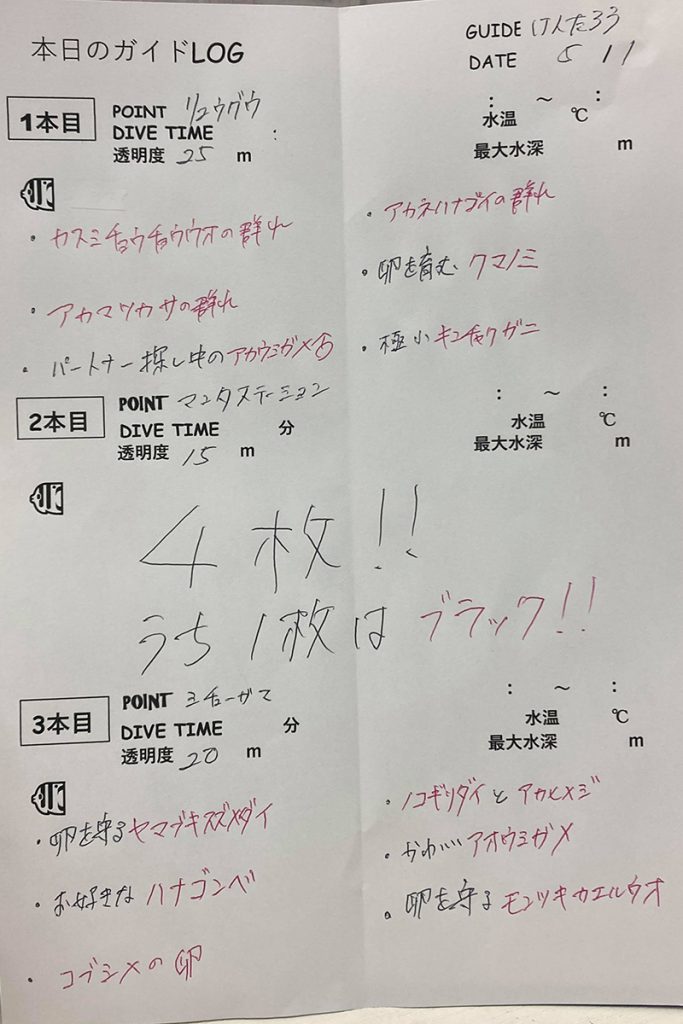 本日のガイドLOG
GUIDE けんたろう
DATE 5 11
1本目
POINT リュウグウ
DIVE TIME :
透明度 25 m
: ~ :
水温 ℃
最大水深 m
・カスミチョウチョウウオの群れ
・アカマツカサの群れ
・パートナー探し中のアカウミガメ♂
・アカネハナゴイの群れ
・卵を育む クマノミ
・極小キンチャクガニ
2本目
POINT マンタステーション
DIVE TIME 分
透明度 15 m
: ~ :
水温 ℃
最大水深 m
4枚!!
うち1枚はブラック!!
3本目
POINT ミチーガマ
DIVE TIME 分
透明度 20 m
: ~ :
水温 ℃
最大水深 m
・卵を守るヤマブキスズメダイ
・お好きな ハナゴンベ
・コブシメの卵
・ノコギリダイと アカヒメジ
・かわいいアオウミガメ
・卵を守る モンツキカエルウオ